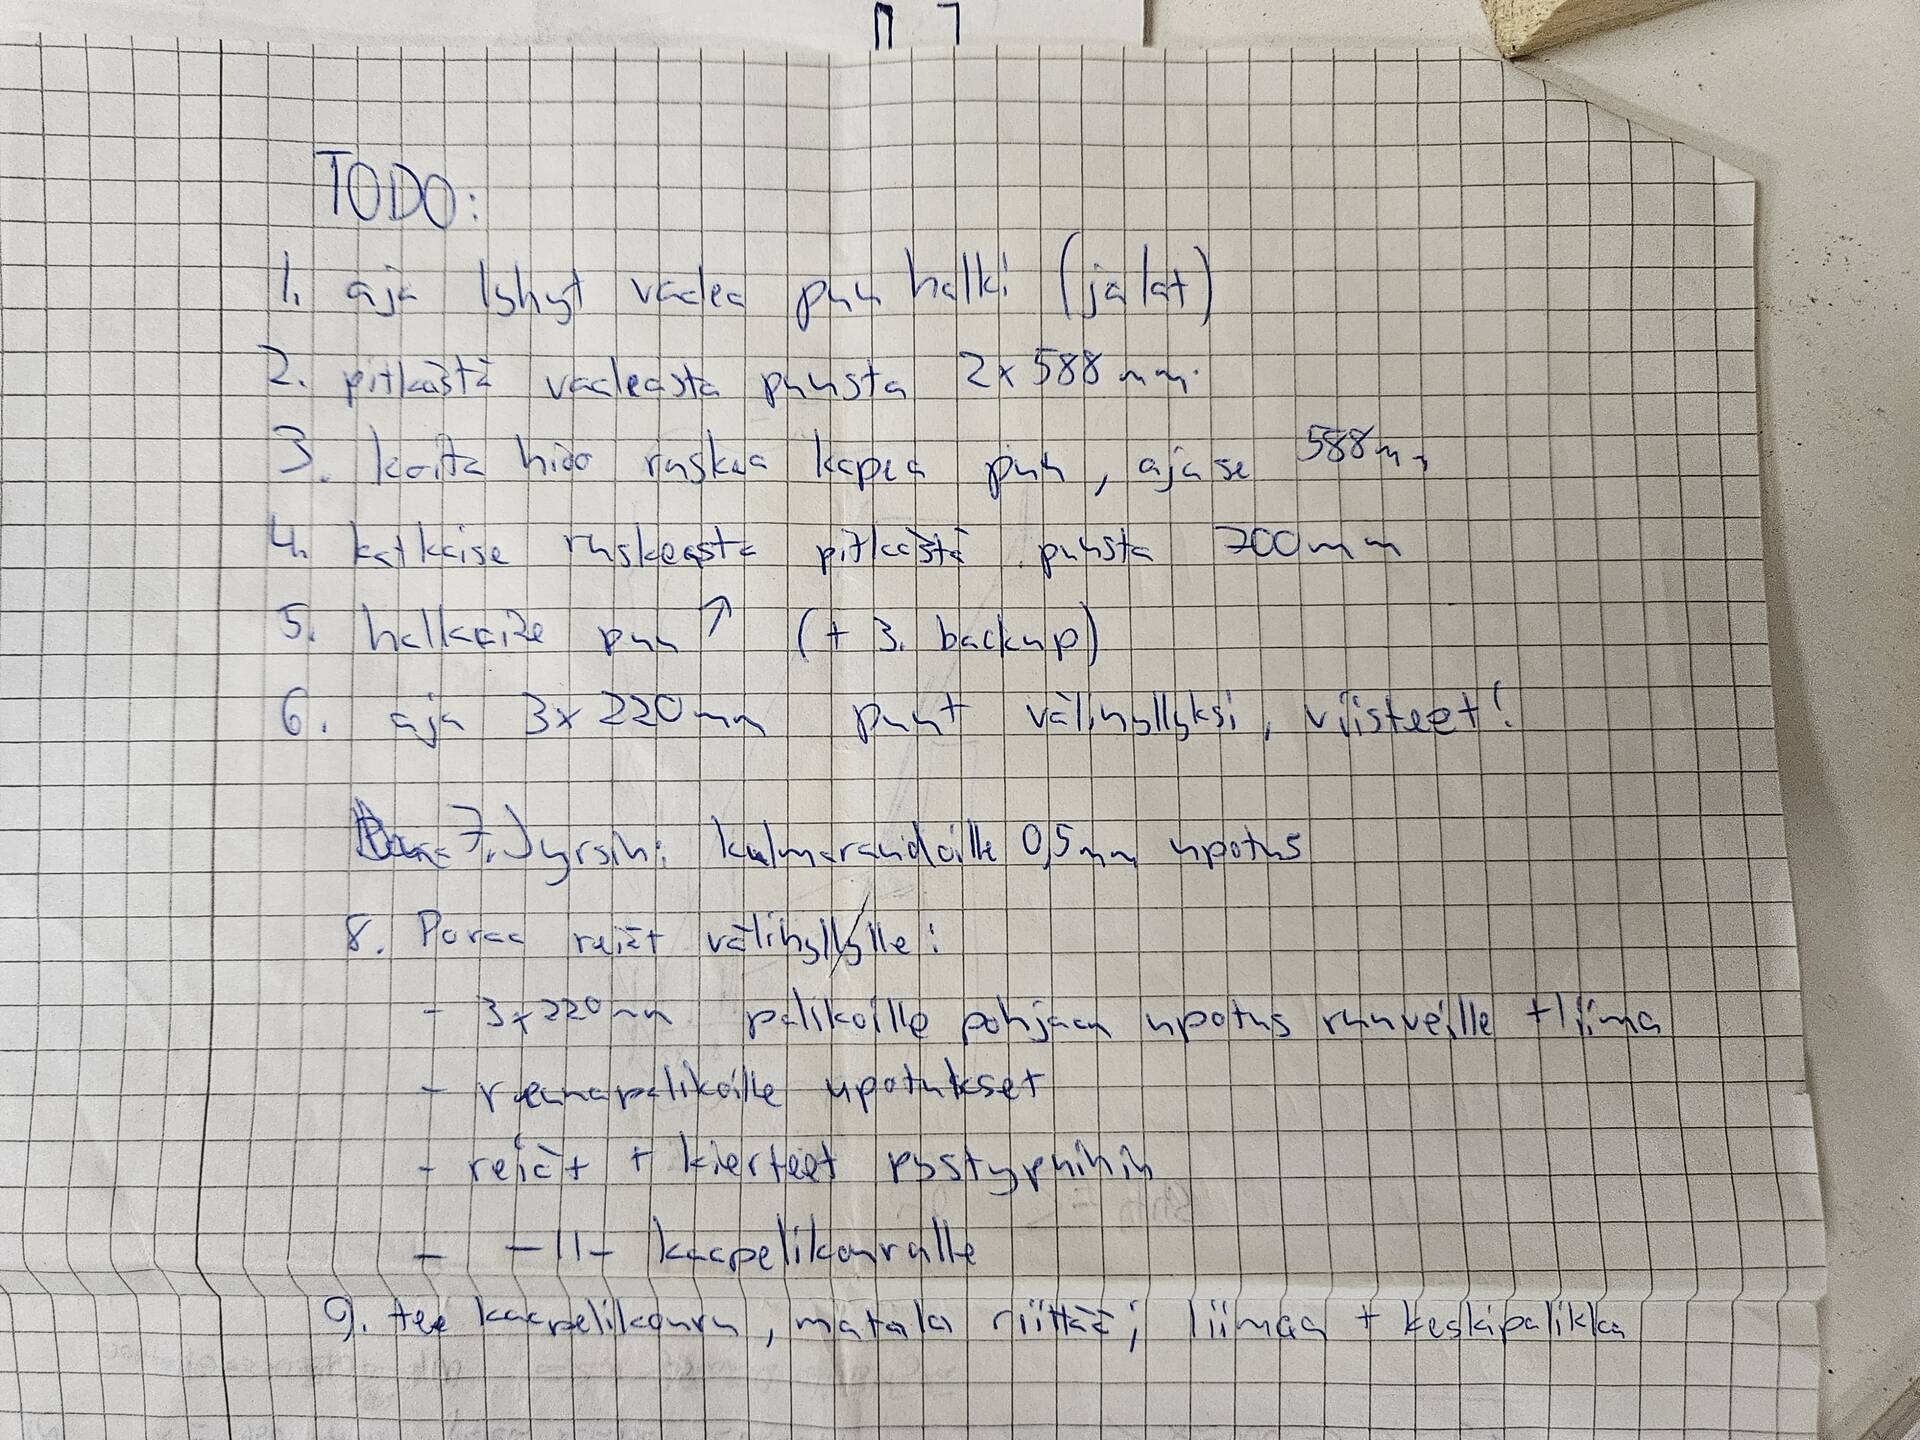 TODO:
1. aja lyhyt vaalea puu halki (jalat)
2. pitkästä vaaleasta puusta 2x588mm.
3. koita hioo ruskea kapea puu, aja se 588mm
4. katkaise ruskeasta pitkästä puusta 700mm
5. halkaise puu ↑ (+ 3. backup)
6. aja 3x220mm puut välihyllyksi, viisteet!
7. Jyrsin: kulmaraudoille 0,5mm upotus
8. Poraa reiät välihyllylle:
- 3x220mm palikoille pohjaan upotus ruuveille + liima
- reunapalikoille upotukset
- reiät + kierteet pystypuihin
- -||- kaapelikourulle
9. tee kaapelikouru, matala riittää; liimaa + keskipalikka